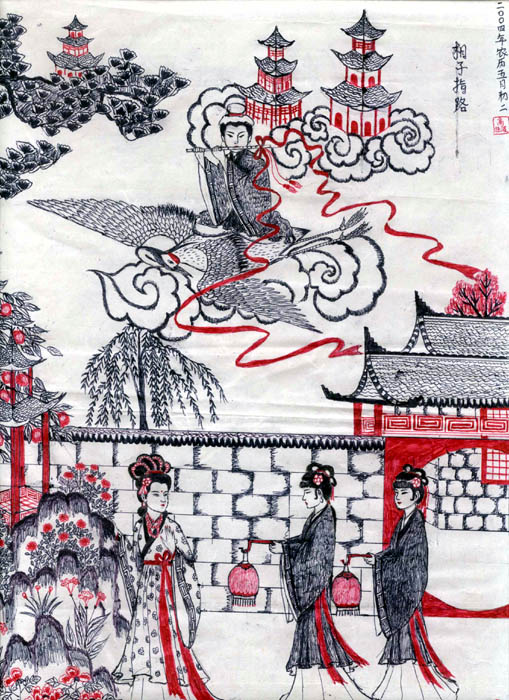 二〇〇四年农历五月初二
相子指路